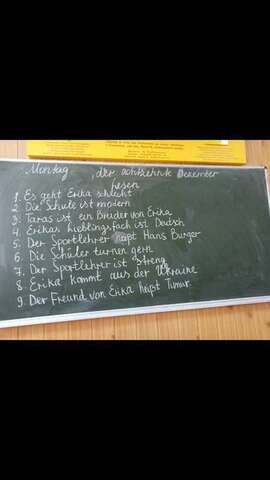 Montag, der achtzehnte Dezember
lesen
1. Es geht Erika schlecht
2. Die Schule ist modern
3. Taras ist ein Bruder von Erika
4. Erikas Lieblingsfach ist Deutsch
5. Der Sportlehrer heißt Hans Burger
6. Die Schüler turnen gern
7. Der Sportlehrer ist streng
8. Erika kommt aus der Ukraine
9. Der Freund von Erika heißt Timur.